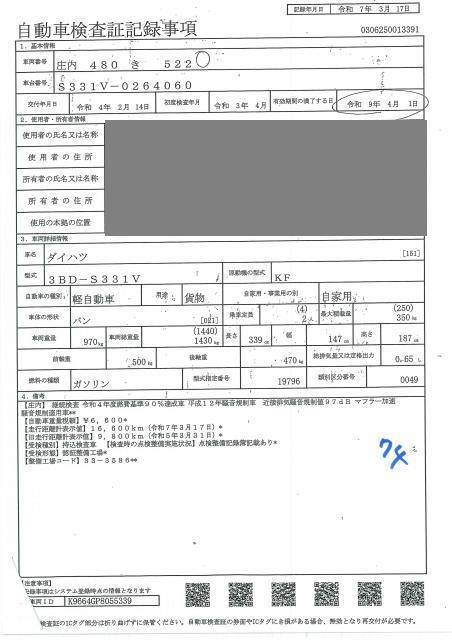 記録年月日 令和 7年 3月 17日
自動車検査証記録事項
0306250013391
1. 基本情報
車両番号 庄内 480 き 522
車台番号 S331V-0264060
交付年月日 令和 4年 2月 14日 初度検査年月 令和 3年 4月 有効期間の満了する日 令和 9年 4月 1日
2. 使用者・所有者情報
使用者の氏名又は名称
使用者の住所
所有者の氏名又は名称
所有者の住所
使用の本拠の位置
3. 車両詳細情報
車名 ダイハツ [151]
型式 3BD-S331V 原動機の型式 KF
自動車の種別 軽自動車 用途 貨物 自家用・事業用の別 自家用
車体の形状 バン [021] 乗車定員 (4) 2人 最大積載量 (250) 350kg
車両重量 970kg 車両総重量 (1440) 1430kg 長さ 339cm 幅 147cm 高さ 187cm
前軸重 500kg 後軸重 470kg 総排気量又は定格出力 0.65L
燃料の種類 ガソリン 型式指定番号 19796 類別区分番号 0049
4. 備考
【庄内】 継続検査 令和4年度燃費基準90%達成車 平成12年騒音規制車 近接排気騒音規制値97dB マフラー加速
騒音規制適用車**
【自動車重量税額】¥6,600*
【走行距離計表示値】16,600km(令和7年3月17日)*
【旧走行距離計表示値】9,800km(令和5年3月31日)*
【受検種別】持込検査車 【検査時の点検整備実施状況】点検整備記録簿記載あり*
【受検形態】認証整備工場*
【整備工場コード】33-3586**
74
【注意事項】
記録事項はシステム登録時点の情報となります
車両ID K9664GP8055339
検査証のICタグ部分は折り曲げずに保管ください。自動車検査証の券面やICタグにき損がある場合、無効となり再交付が必要です。